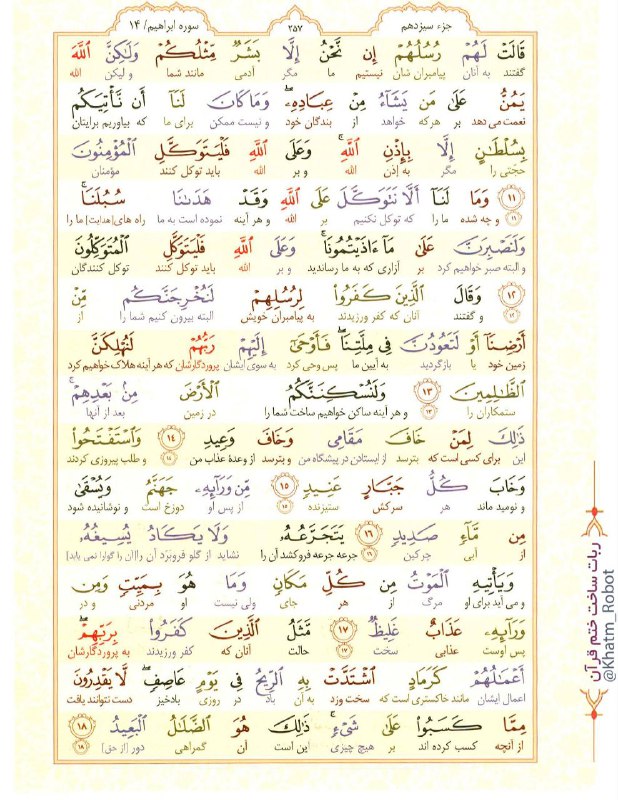 جزء سیزدهم
۲۵۷
سوره ابراهیم/ ۱۴
قَالَتْ لَهُمْ رُسُلُهُمْ إِن نَّحْنُ إِلَّا بَشَرٌ مِّثْلُكُمْ وَلَٰكِنَّ ٱللَّهَ
گفتند به آنان پیامبران شان نیستیم ما مگر آدمی مانند شما و لیکن الله
يَمُنُّ عَلَىٰ مَن يَشَآءُ مِنْ عِبَادِهِۦ ۖ وَمَا كَانَ لَنَآ أَن نَّأْتِيَكُم
نعمت می دهد بر هرکه خواهد از بندگان خود و نیست ممکن برای ما که بیاوریم برایتان
بِسُلْطَٰنٍ إِلَّا بِإِذْنِ ٱللَّهِ ۚ وَعَلَى ٱللَّهِ فَلْيَتَوَكَّلِ ٱلْمُؤْمِنُونَ
حجتی را مگر به إذن الله و بر الله باید توکل کنند مؤمنان
۱۱ وَمَا لَنَآ أَلَّا نَتَوَكَّلَ عَلَى ٱللَّهِ وَقَدْ هَدَىٰنَا سُبُلَنَا ۚ
۱۱ و چه شده ما را که توکل نکنیم بر الله و هر آینه نموده است به ما راه های[هدایت] ما را
وَلَنَصْبِرَنَّ عَلَىٰ مَآ ءَاذَيْتُمُونَا ۚ وَعَلَى ٱللَّهِ فَلْيَتَوَكَّلِ ٱلْمُتَوَكِّلُونَ
و البته صبر خواهیم کرد بر آزاری که به ما رساندید و بر الله باید توکل کنند توکل کنندگان
۱۲ وَقَالَ ٱلَّذِينَ كَفَرُوا۟ لِرُسُلِهِمْ لَنُخْرِجَنَّكُم مِّنْ
۱۲ و گفتند آنان که کفر ورزیدند به پیامبران خویش البته بیرون کنیم شما را از
أَرْضِنَآ أَوْ لَتَعُودُنَّ فِى مِلَّتِنَا ۖ فَأَوْحَىٰٓ إِلَيْهِمْ رَبُّهُمْ لَنُهْلِكَنَّ
زمین خود یا بازگردید به آیین ما پس وحی کرد به سوی ایشان پروردگارشان که هر آینه هلاک خواهیم کرد
ٱلظَّٰلِمِينَ ۱۳ وَلَنُسْكِنَنَّكُمُ ٱلْأَرْضَ مِنۢ بَعْدِهِمْ ۚ
ستمکاران را ۱۳ و هر آینه ساکن خواهیم ساخت شما را در زمین بعد از آنها
ذَٰلِكَ لِمَنْ خَافَ مَقَامِى وَخَافَ وَعِيدِ ۱۴ وَٱسْتَفْتَحُوا۟
این برای کسی است که بترسد از ایستادن در پیشگاه من و بترسد از وعدهٔ عذاب من ۱۴ و طلب پیروزی کردند
وَخَابَ كُلُّ جَبَّارٍ عَنِيدٍ ۱۵ مِّن وَرَآئِهِۦ جَهَنَّمُ وَيُسْقَىٰ
و نومید ماند هر سرکش ستیزنده ۱۵ از پس او دوزخ است و نوشانیده شود
مِن مَّآءٍ صَدِيدٍ ۱۶ يَتَجَرَّعُهُۥ وَلَا يَكَادُ يُسِيغُهُۥ
از آبی چرکین ۱۶ جرعه جرعه فروکشد آن را نشاید از گلو فروبرد آن را[آن را گوارا نمی یابد]
وَيَأْتِيهِ ٱلْمَوْتُ مِن كُلِّ مَكَانٍ وَمَا هُوَ بِمَيِّتٍ ۖ وَمِن
و می آید برای او مرگ از هر جای ولی نیست او مردنی و در
وَرَآئِهِۦ عَذَابٌ غَلِيظٌ ۱۷ مَّثَلُ ٱلَّذِينَ كَفَرُوا۟ بِرَبِّهِمْ ۖ
پس اوست عذابی سخت ۱۷ حالت آنان که کفر ورزیدند به پروردگارشان
أَعْمَٰلُهُمْ كَرَمَادٍ ٱشْتَدَّتْ بِهِ ٱلرِّيحُ فِى يَوْمٍ عَاصِفٍ ۖ لَّا يَقْدِرُونَ
اعمال ایشان مانند خاکستری است که سخت وزد به آن باد در روزی بادخیز دست نتوانند یافت
مِمَّا كَسَبُوا۟ عَلَىٰ شَىْءٍ ۚ ذَٰلِكَ هُوَ ٱلضَّلَٰلُ ٱلْبَعِيدُ ۱۸
از آنچه کسب کرده اند بر هیچ چیزی این است آن گمراهی دور [از حق] ۱۸
ربات ساخت ختم قرآن
@Khatm_Robot